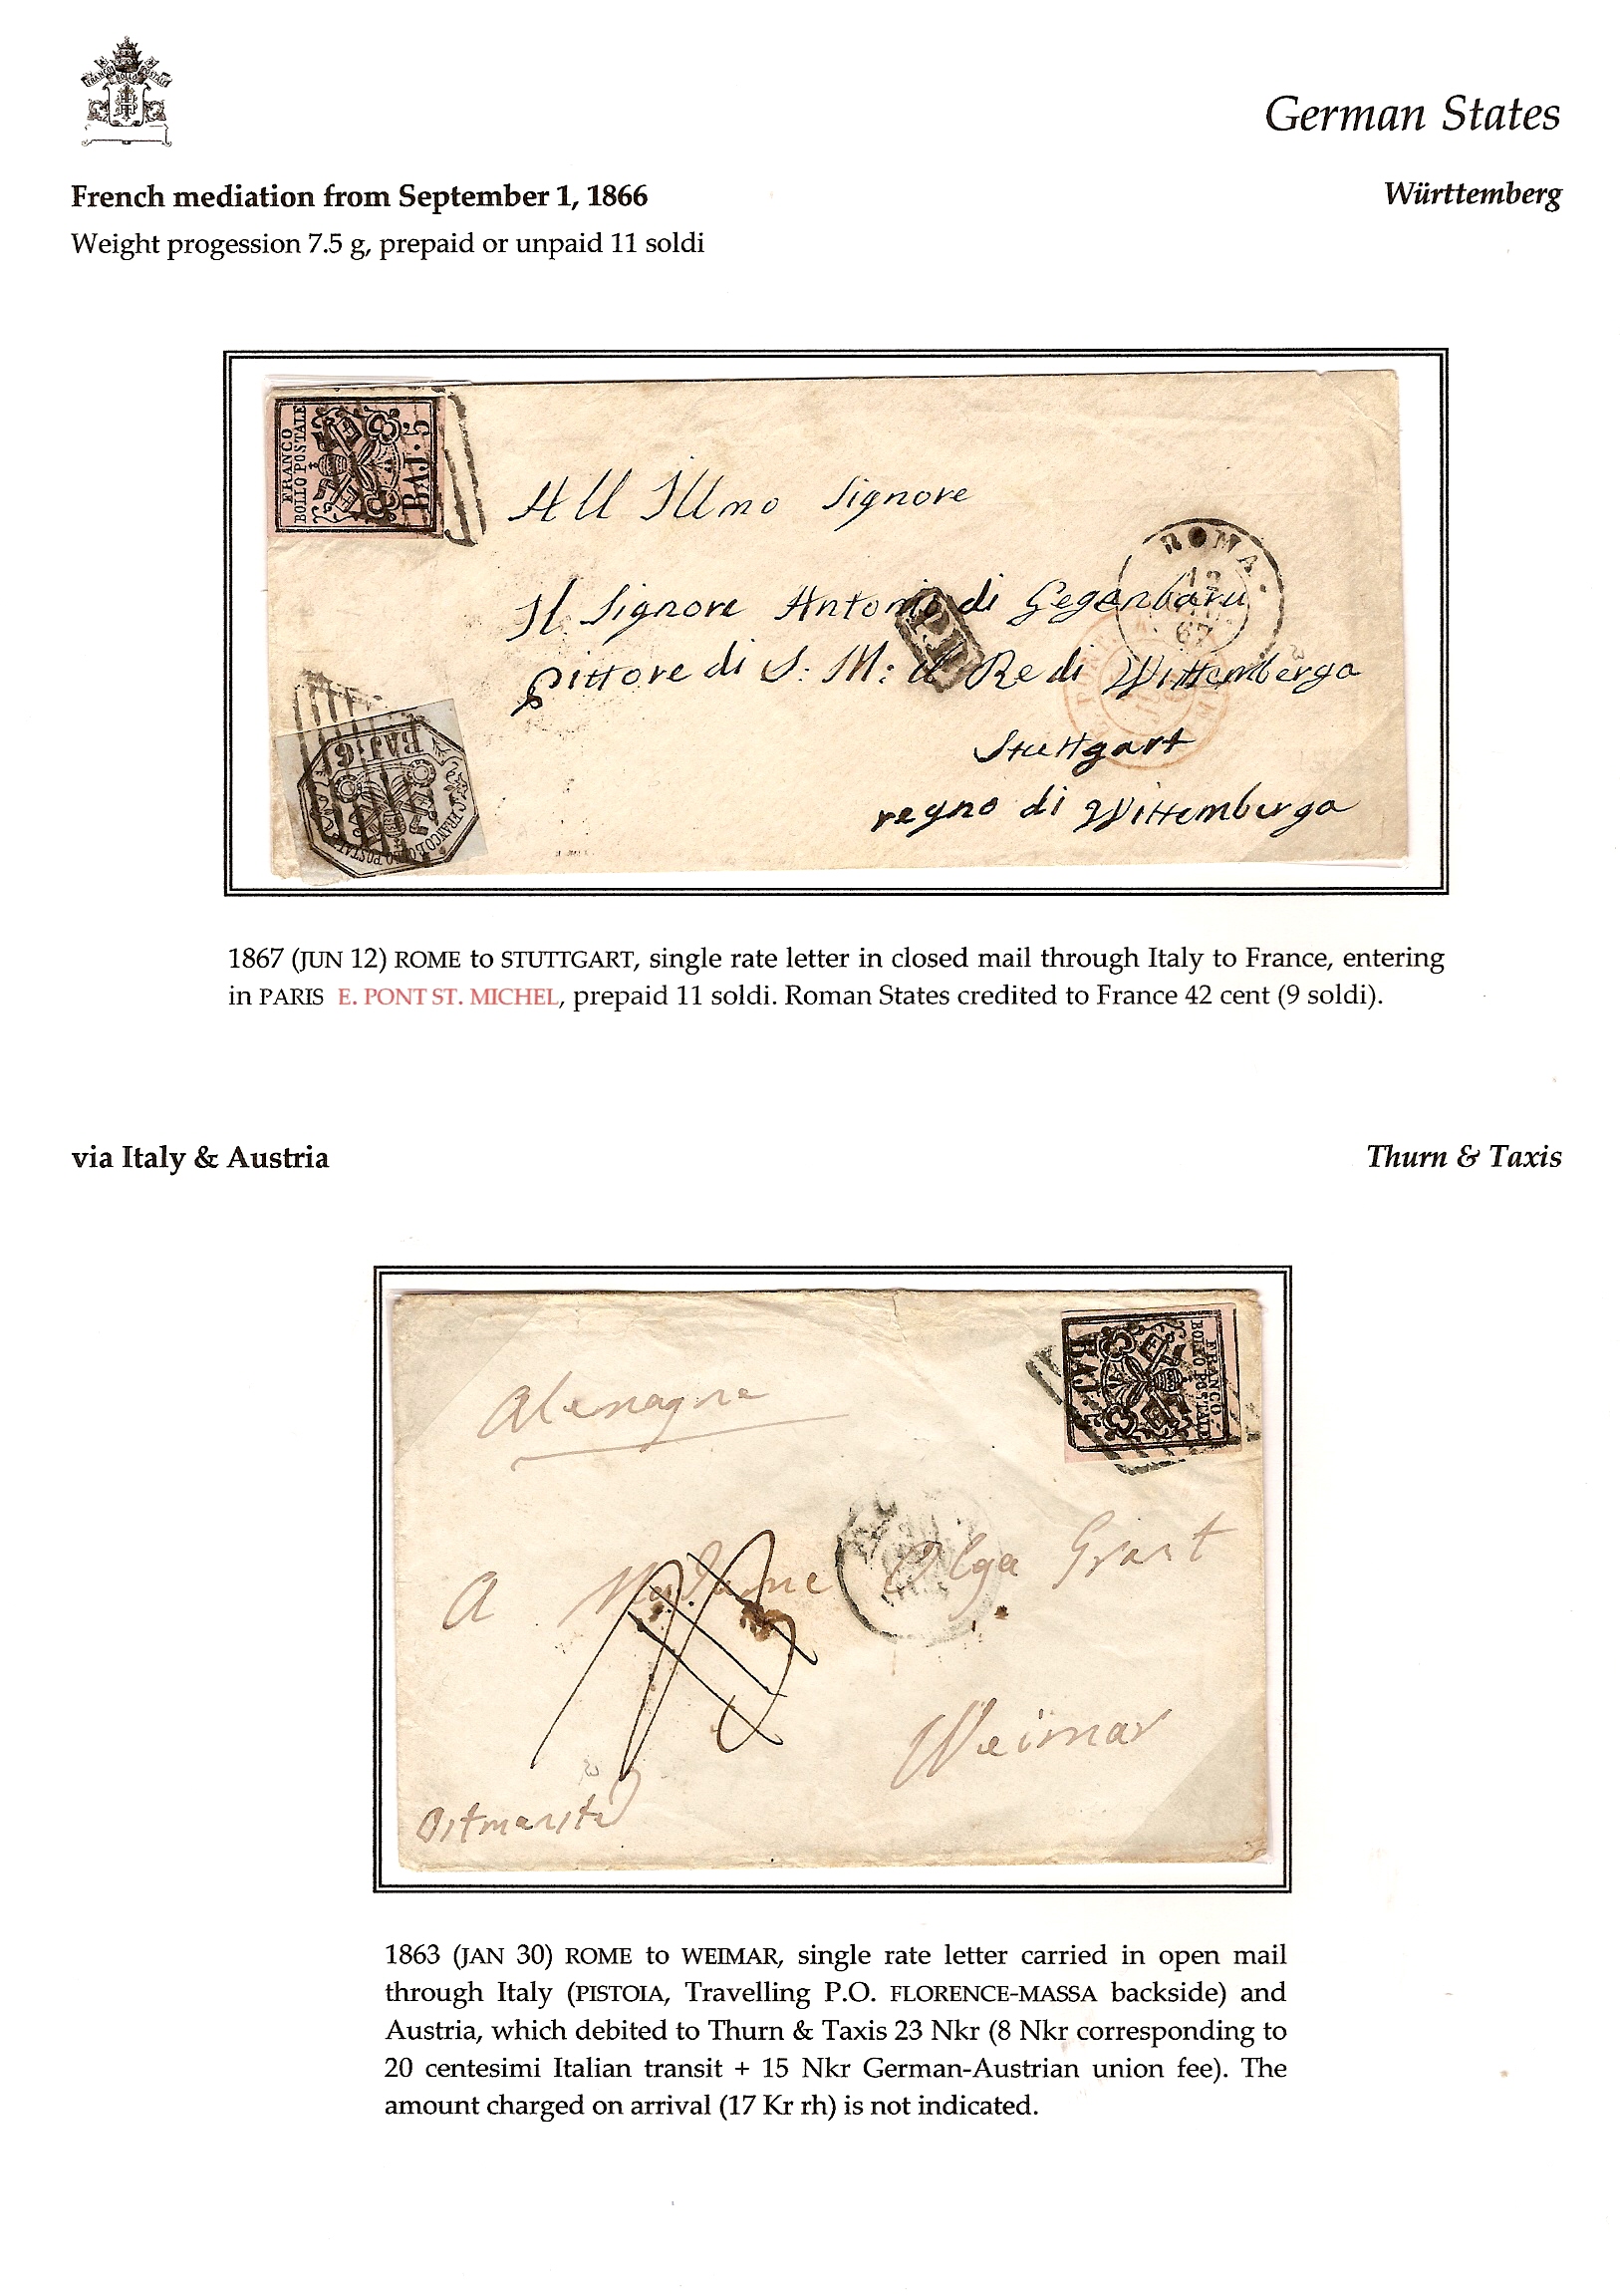 FRANCO BOLLO POSTALE
German States
French mediation from September 1, 1866
Württemberg
Weight progession 7.5 g, prepaid or unpaid 11 soldi
FRANCO
BOLLO POSTALE
BAJ. 5
All Illmo Signore
ROMA
12
67
Il Signore Antonio di Gegenbaru
P.D.
Pittore di S. M: il Re di Wittemberga
Stuttgart
BAJ. 6
FRANCO BOLLO POSTALE
regno di Wittemberga
1867 (JUN 12) ROME to STUTTGART, single rate letter in closed mail through Italy to France, entering
in PARIS E. PONT ST. MICHEL, prepaid 11 soldi. Roman States credited to France 42 cent (9 soldi).
via Italy & Austria
Thurn & Taxis
FRANCO
BOLLO POSTALE
BAJ.
Alemagne
A Madame Olga Grant
Weimar
1863 (JAN 30) ROME to WEIMAR, single rate letter carried in open mail
through Italy (PISTOIA, Travelling P.O. FLORENCE-MASSA backside) and
Austria, which debited to Thurn & Taxis 23 Nkr (8 Nkr corresponding to
20 centesimi Italian transit + 15 Nkr German-Austrian union fee). The
amount charged on arrival (17 Kr rh) is not indicated.